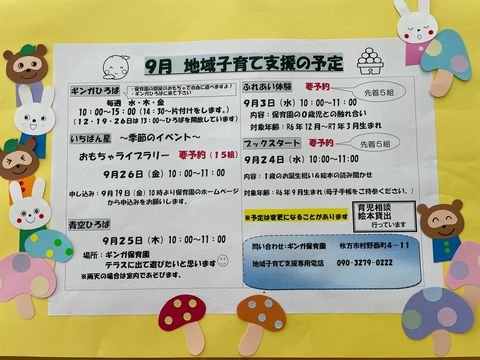 9月 地域子育て支援の予定
ギンガひろば
・保育園の部屋のおもちゃで自由に遊べますよ！
ギンガひろばに来て下さい
毎週 水・木・金
10：00～15：00（14：30～片付けをします。）
（12・19・26は13：00～ひろばを開放しています）
いちばん星 ～季節のイベント～
おもちゃライブラリー 要予約（15組）
9月26日（金）10：00～11：00
申し込み：9月19日（金）10時より保育園のホームページ
から申込みをお願いします。
青空ひろば
9月25日（木）10：00～11：00
場所：ギンガ保育園
テラスに出て遊びたいと思います
※雨天の場合は室内であそびます。
ふれあい体験 要予約 先着5組
9月3日（水）10：00～11：00
内容：保育園の0歳児との触れ合い
対象年齢：R6年12月～R7年3月生まれ
ブックスタート 要予約 先着5組
9月24日（水）10：00～11：00
内容：1歳のお誕生祝い＆絵本の読み聞かせ
対象年齢：R6年9月生まれ（母子手帳をご持参ください。）
※予定は変更になることがあります
育児相談
絵本貸出
行っています
問い合わせ：ギンガ保育園 枚方市村野西町4－11
地域子育て支援専用電話 090-3279-0222